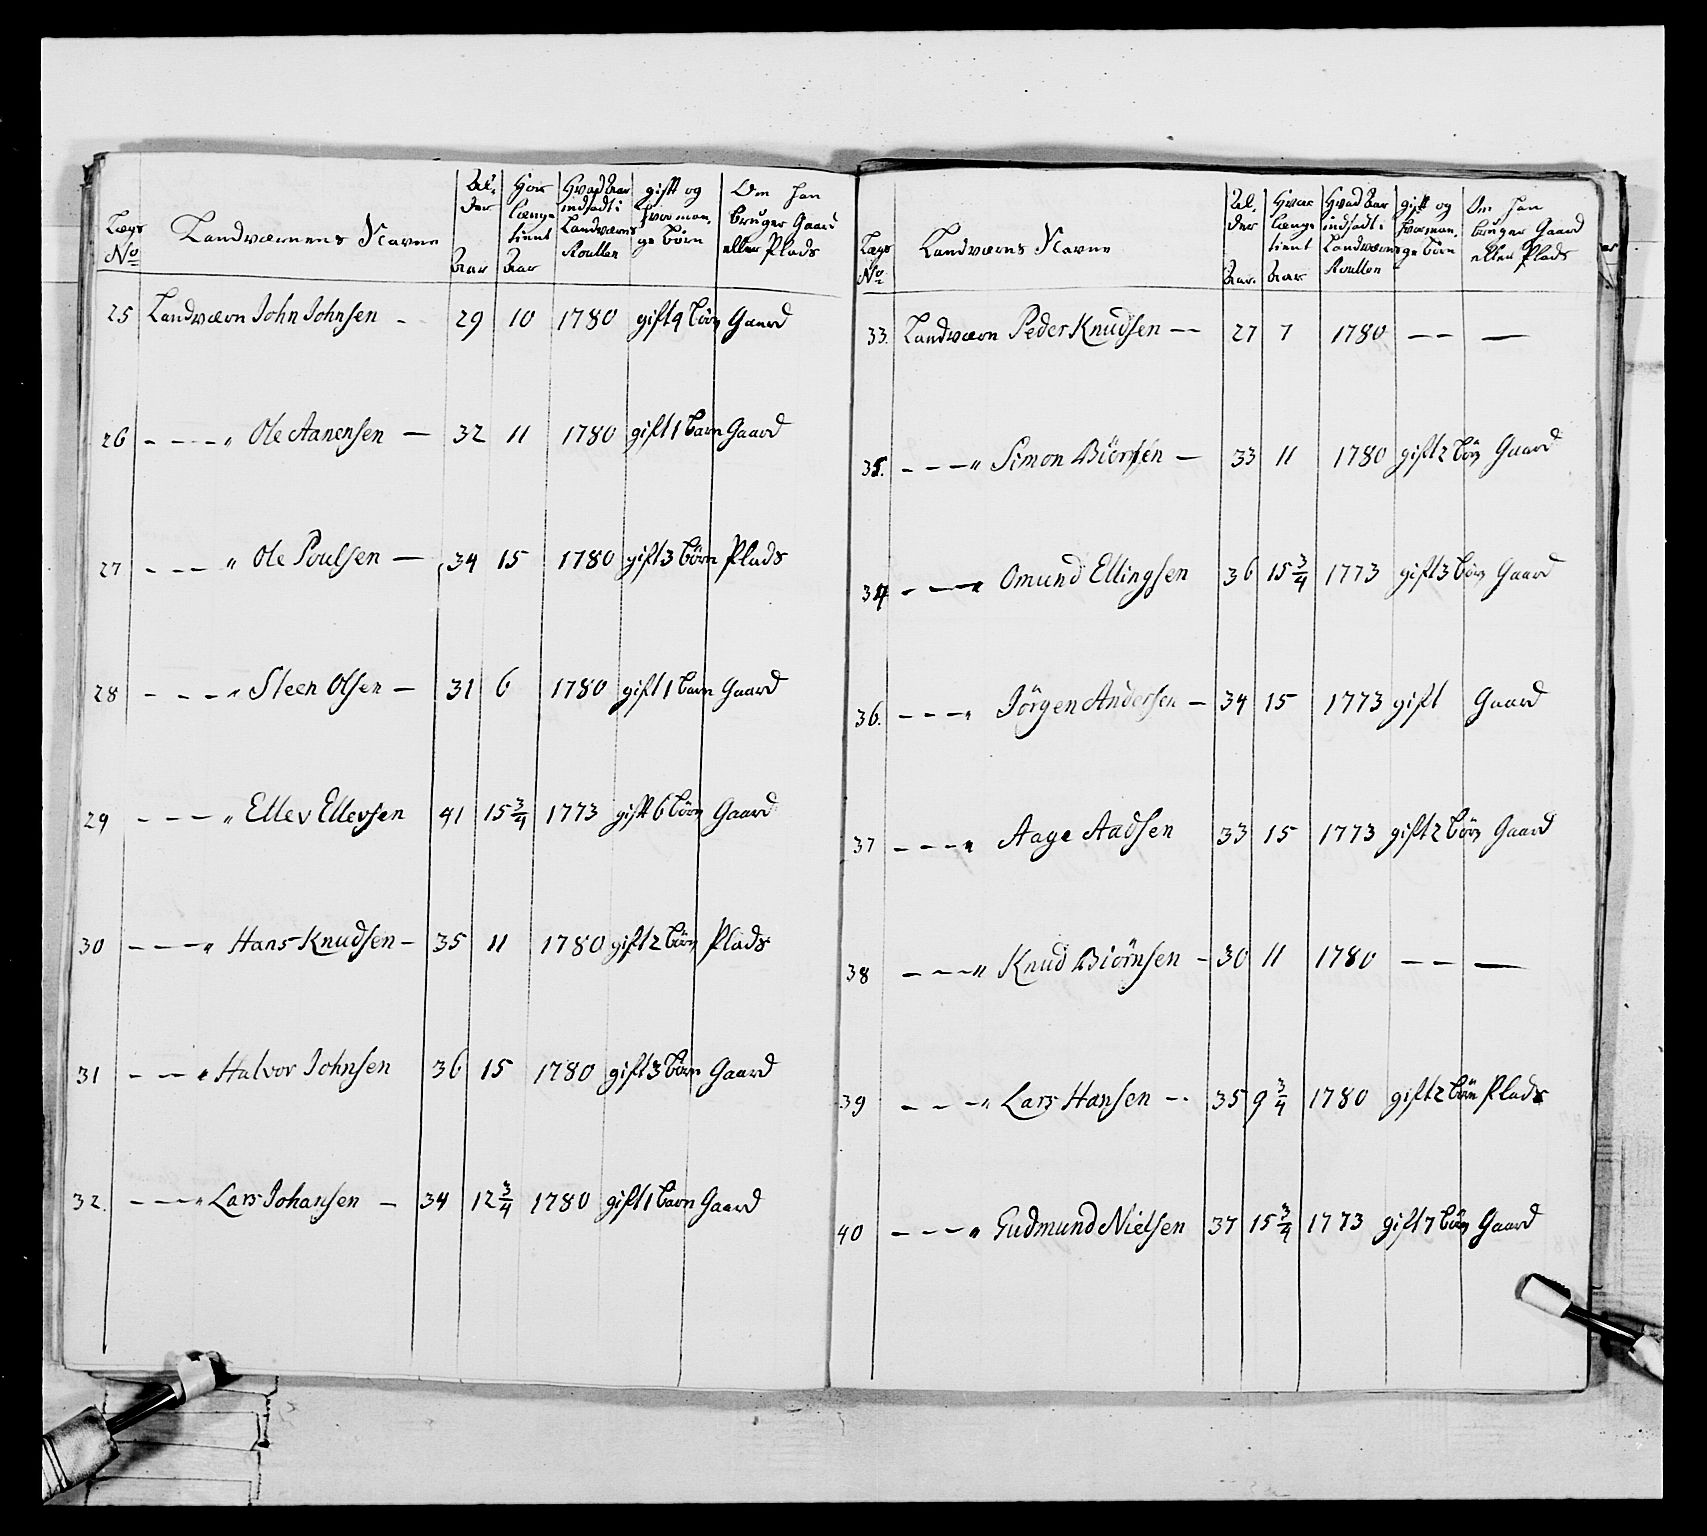 Lægs No | Landværnens Navne | Al-der Aar | Hvor længe tient Aar | Hvad Aar indsadt i Landværns Roullen | gift og hvor man-ge börn | Om han bruger Gaard eller Plads
25 Landværn John Johnsen - 29 10 1780 gift 4 börn Gaard
26 - - - " Ole Aanensen - 32 11 1780 gift 1 barn Gaard
27 - - - " Ole Poulsen - 34 15 1780 gift 3 börn Plads
28 - - - " Steen Olsen - 31 6 1780 gift 1 barn Gaard
29 - - - " Ellev Ellevsen 41 15 3/4 1773 gift 6 börn Gaard
30 - - - " Hans Knudsen - 35 11 1780 gift 2 börn Plads
31 - - " Halvor Johnsen 36 15 1780 gift 3 börn Gaard
32. - - - " Lars Johansen - 34 12 3/4 1780 gift 1 barn Gaard
Lægs No | Landværns Navne | Al-der Aar. | Hvor længe tient Aar | Hvad Aar indsadt i Landværns Roullen | gift og hvor man-ge börn | Om han bruger Gaard eller Plads
33. Landværn Peder Knudsen - - 27 7 1780 - - -
35. - - - " Simon Biörnsen - 33 11 1780 gift 2 börn Gaard
34 - - - " Omund Ellingsen 36 15 3/4 1773 gift 3 börn Gaard
36. - - - " Jörgen Andersen - 34 15 1773 gift Gaard
37 - - - " Aage Aadsen 33 15 1773 gift 2 börn Gaard
38 - - - " Knud Biörnsen - 30 11 1780 - - -
39 - - - " Lars Hansen - - 35 9 3/4 1780 gift 2 börn Plads
40 - - - " Gudmund Nielsen 37 15 3/4 1773 gift 7 börn Gaard